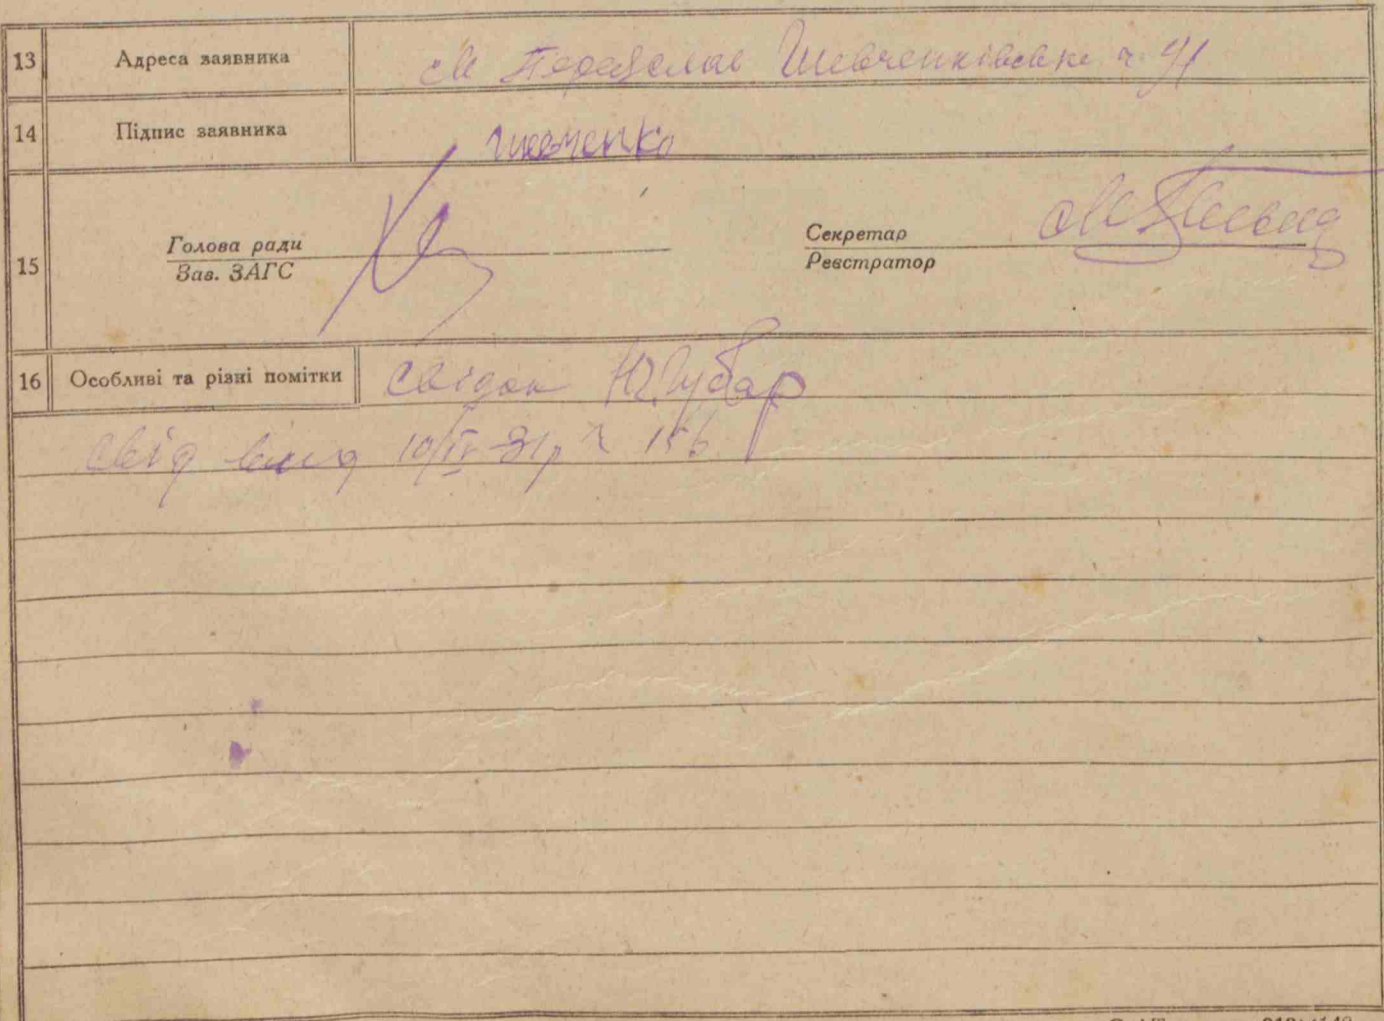 13 Адреса заявника м Переяслав Шевченківська ч. 41
14 Підпис заявника Шевченко
15 Голова ради
Зав. ЗАГС
Секретар
Реєстратор
16 Особливі та різні помітки свідок Ю. Губар
свід вид 10/IV-31р ч 156